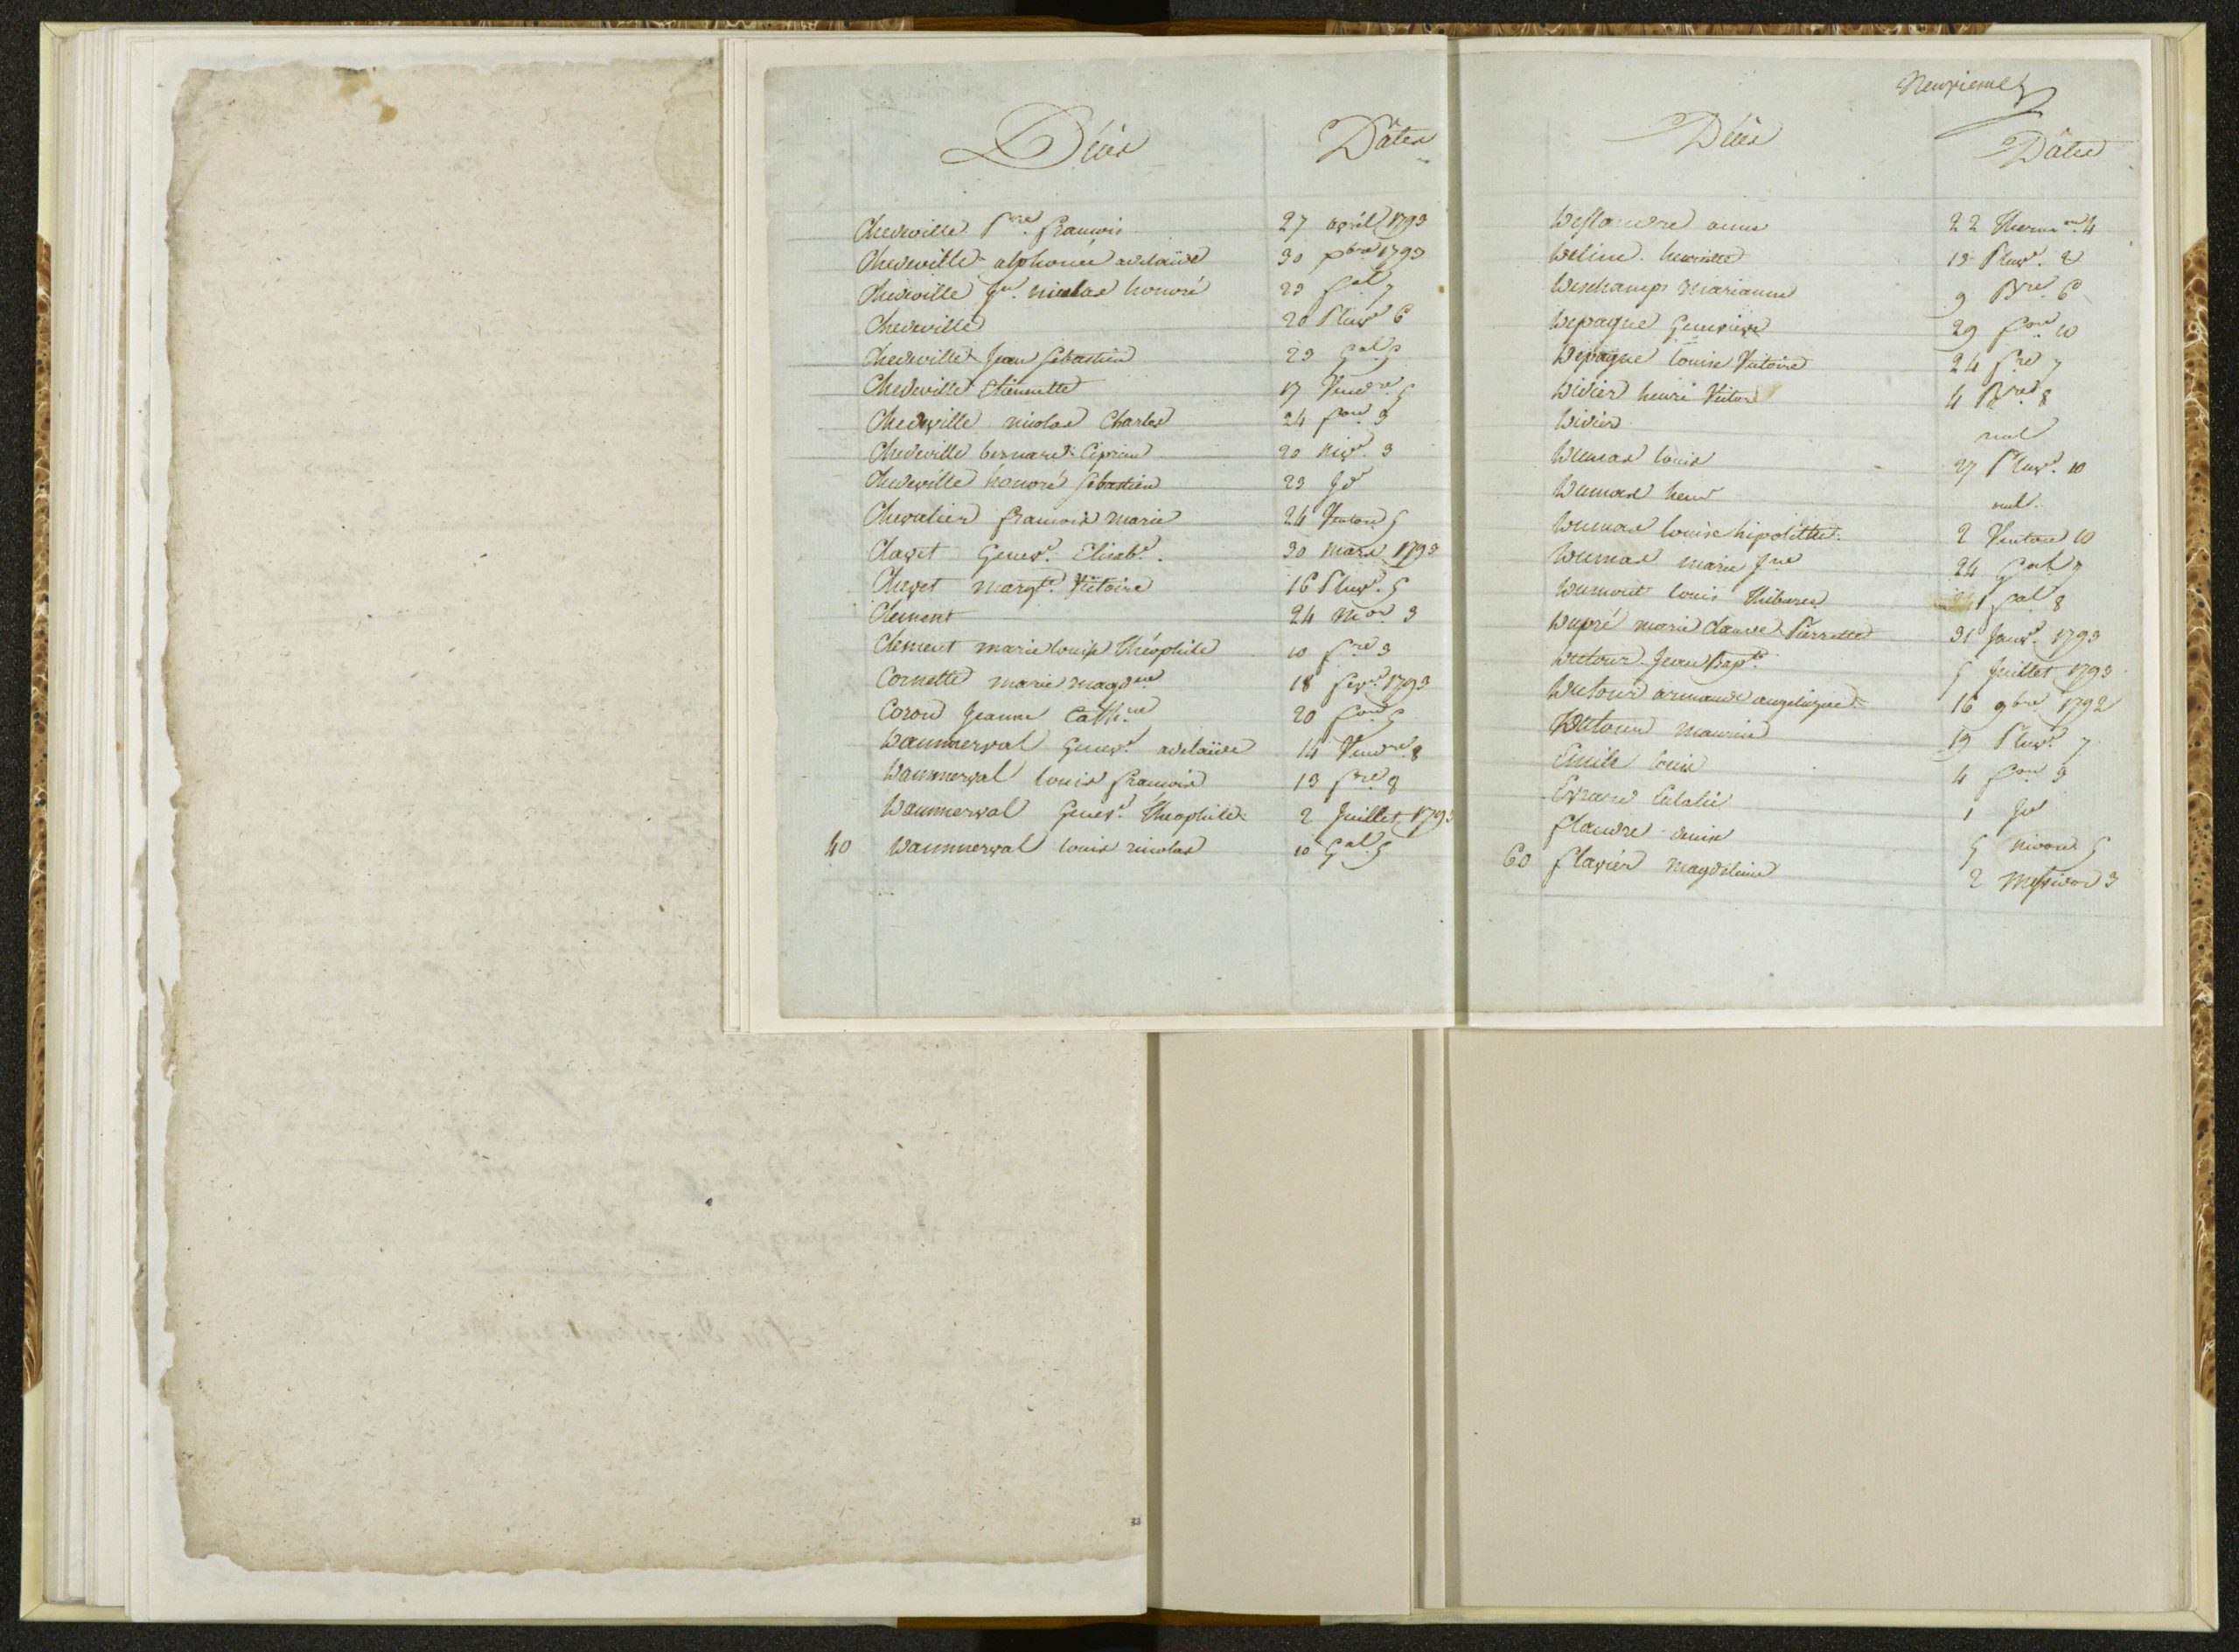 Neuvieme
Décès Dâtes
Chedeville Pre. françois 27 avril 1793
Chedeville alphonse adelaïde 30 xbre 1793
Chedeville Jn. nicolas honoré 23 7
Chedeville 20 Pluv. 6
Chedeville Jean Sebastien 23 5
Chedeville Etiennette 17 Vend. 5
Chedeville nicolas Charles 24 3
Chedeville bernard Ciprien 20 niv. 3
Chedeville honoré Sébastien 23 Jd
Chevalier françois marie 24 Ventose 5
Clavet Genev. Elisab. 30 mars 1793
Chevet margte. Victoire 16 Pluv. 5
Clement 24 3
Clement marie louise Théophile 10 fre 3
Cornette marie magdne. 18 1793
Coron Jeanne Cathne. 20 5
Dammerval Genev. adelaïde 14 Vendre. 8
Dammerval louis françois 13 fre. 8
Dammerval Genev. Theophile 2 Juillet 1793
40 Dammerval louis nicolas 10 Gal. 5
Décès Dâtes
Deflandre anne 22 Therm. 4
Deline henriette 13 Pluv. 2
Deschamps marianne 9 Bre. 6
Depagne Genevieve 29 10
Depagne louise Victoire 24 fre 7
Didier henri Victor 4 Bre. 8
Didier nul
Dumas louis 27 Pluv. 10
Dumas nul.
Dumas louise hipolitte 2 Ventose 10
Dumas marie Jne 24 7
Dumont louis Thiburce 8
Dupré marie claude Pierrette 31 Janv. 1793
Dutour Jean Bapte. 5 Juillet 1793
Dutour armande angelique 16 9bre 1792
Dutour maurice 19 Pluv. 7
Emile louis 4 3
Evrard Eulalie 1 Jd
flandre denis 5 nivose 5
60 flavier magdeleine 2 Messidor 3